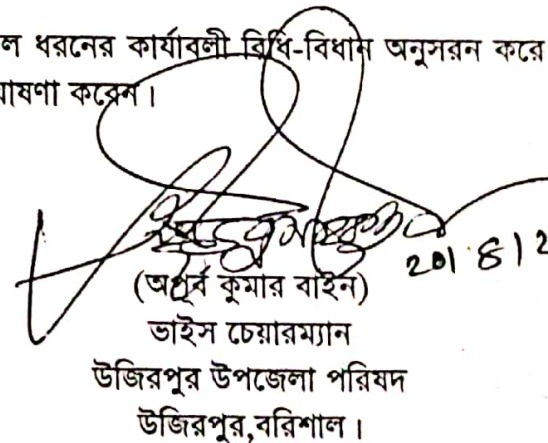 ল ধরনের কার্যাবলী বিধি-বিধান অনুসরন করে
াষণা করেন।
২০।৪।২
(অপূর্ব কুমার বাইন)
ভাইস চেয়ারম্যান
উজিরপুর উপজেলা পরিষদ
উজিরপুর,বরিশাল।